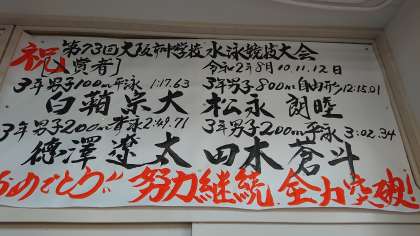 祝 第73回大阪市中学校水泳競技大会
[入賞者] 令和2年8月10.11.12日
3年男子100m平泳 1:17.63 3年男子800m自由形 12:15.01
白箱京大 松永朗睦
3年男子200m背泳 2:49.71 3年男子200m平泳 3:02.34
德澤遼太 田本蒼斗
おめでとう!! 努力継続 全力突破!